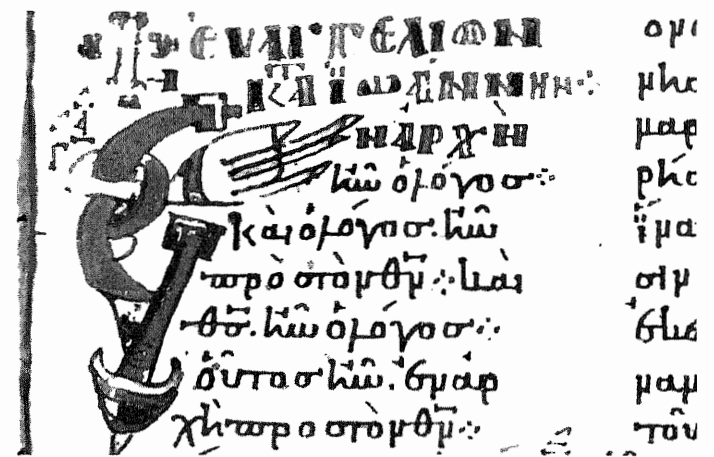 ΕΥΑΓΓΕΛΙΟΝ
ΚΤΑ ΪΩΑΝΝΗΝ
ΕΝ ἈΡΧῊ
ἦν ὁ λόγοσ·:
καὶ ὁ λόγοσ ἦν
πρὸσ τὸν θ̅ν̅·:· καὶ
θ̅σ̅. ἦν ὁ λόγοσ·:·
ὁῦτοσ ἦν. ἐν ἀρ
χῆ προσ τὸν θ̅ν̅·:
ονο
νησ
μαρ
ρήσ
ϊνα
σιν
ναμ
τοῦ